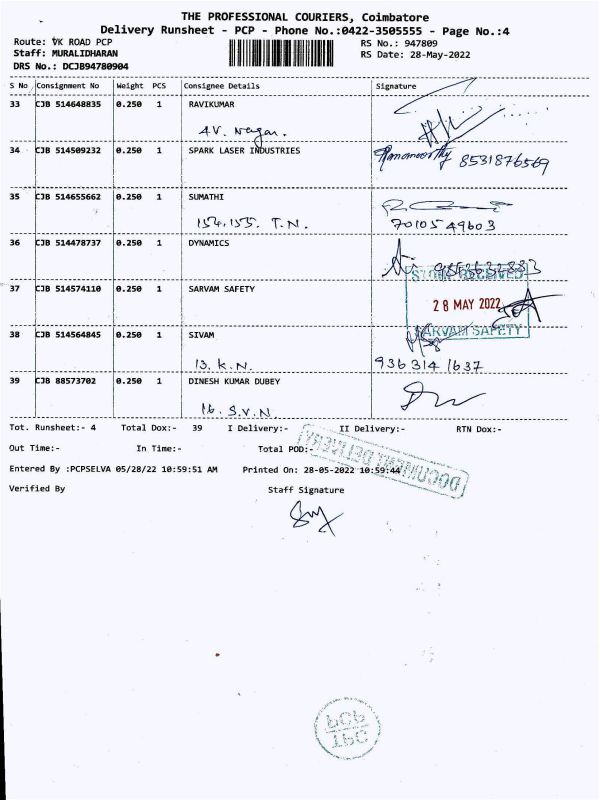 THE PROFESSIONAL COURIERS, Coimbatore
Delivery Runsheet - PCP - Phone No.:0422-3505555 - Page No.:4
Route: VK ROAD PCP
RS No.: 947809
Staff: MURALIDHARAN
RS Date: 28-May-2022
DRS No.: DCJB94780904
S No Consignment No Weight PCS Consignee Details Signature
33 CJB 514648835 0.250 1 RAVIKUMAR
A.V. Nagar.
34 CJB 514509232 0.250 1 SPARK LASER INDUSTRIES
Ramamoorthy 8531876569
35 CJB 514655662 0.250 1 SUMATHI
154.155. T.N. 7010549603
36 CJB 514478737 0.250 1 DYNAMICS
37 CJB 514574110 0.250 1 SARVAM SAFETY
28 MAY 2022
SARVAM SAFETY
38 CJB 514564845 0.250 1 SIVAM
13. K.N. 9363141637
39 CJB 88573702 0.250 1 DINESH KUMAR DUBEY
16. S.V.N.
Tot. Runsheet:- 4 Total Dox:- 39 I Delivery:- II Delivery:- RTN Dox:-
Out Time:- In Time:- Total POD:-
DOCUMENT DELIVERY
Entered By :PCPSELVA 05/28/22 10:59:51 AM Printed On: 28-05-2022 10:59:44
Verified By Staff Signature